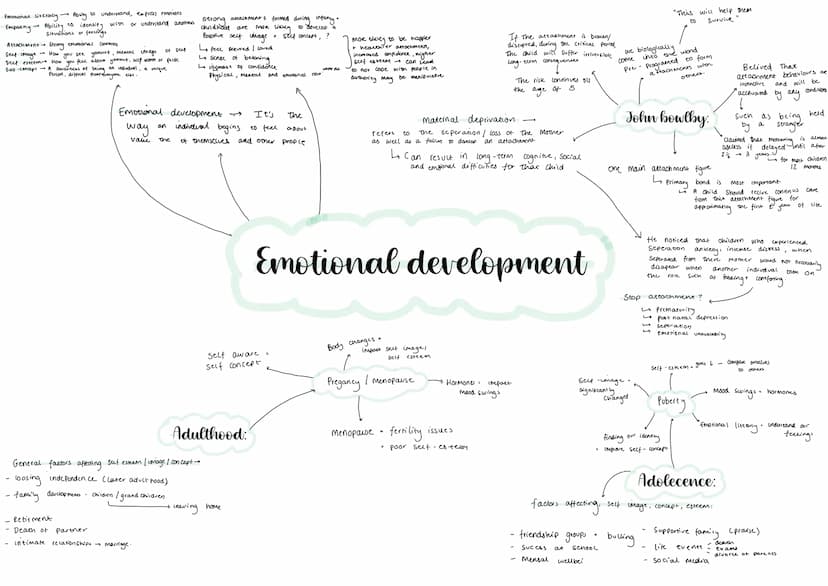 Emotional literacy → Ability to understand, express emotions
Empathy → Ability to identity with or understand another
situations or feelings
Attachment → Strong emotional
Self image → How you see yourself, mental image of self
Self esteem → How you feel about yourself, self worth or pride
Self concept → A awareness of being an individual, a unique
Person, different from everyone else.
Strong attachments formed during infancy +
childhood are more likely to develop a
Positive self image + self concept, ?
↳ Feel secured / loved
↳ sense of belonging
↳ confidence
Physical, mental and emotional
More likely to be happier
+ insecure attachment,
increased confidence, higher
self esteem → can lead
to not cope with
authority may be
Emotional development → It's the
way an individual begins to feel about
value the of themselves and other people
Emotional development
maternal deprivation →
refers to the seperation / loss of the Mother
as well as a failure to an attachment
↳ Can result in long-term cognitive, social
and emotional difficulties for that child
If the attachment is broken/
disrupted, during the critical period
The child will suffer irreversible
long-term consequences
The risk continues till
the age of 5
"This will help them
to survive"
we biologically
come into the world
Pre-programed to form
attachments with
others
Belived that
attachment behaviours are
instinctive and will be
activated by any
such as being held
by a stranger
John bowlby:
Claimed that Mothering is almost
useless if delayed until after
2½ → 3 years
↳ for most children
12 months
One main attachment figure
↳ Primary bond is most important
↳ A child should recive continous care
from this attachment figure for
approximatley the first years of life
He noticed that children who experienced
Seperation anxiety, intense distress, when
seperated from there mother would not
disapear when another individual took on
the role such as feeding + comforting
Stop attachment ?
↳ Prematurity
↳ post natal depression
↳ seperation
↳ Emotional unavailability
Self aware +
self concept
Body changes +
impact self image,
self esteem
Pregancy / Menopause
→ Hormones + impact
Mood swings
Menopause + fertility issues
+ poor self-esteem
Adulthood:
General factors affecting self esteem / image / concept →
- loosing independence (later adulthood)
- family development - children / grandchildren
↳ leaving home
- Retirment
- Death of partner
- Intimate relationships → marrage
self-esteem + - compare ourselves
to others
Self-image +
significantly
changed
Puberty
Mood swings + hormones
Emotional literacy + understand our
feelings
finding our identity
+ improve self-concept
Adolecence:
factors affecting, self image, concept, esteem:
- friendship groups + bulling
- sucess at school
- Mental wellbei
- Supportive family (praise)
- life events - death
exams
divorce of parents
- social media